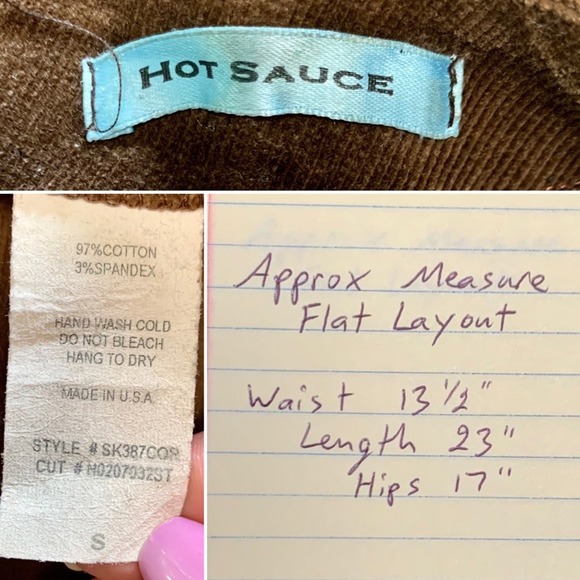 HOT SAUCE
97%COTTON
3%SPANDEX
HAND WASH COLD
DO NOT BLEACH
HANG TO DRY
MADE IN U.S.A
STYLE # SK387COR
CUT # M0207032ST
S
Approx Measure
Flat Layout
Waist 13 1/2"
Length 23"
Hips 17"